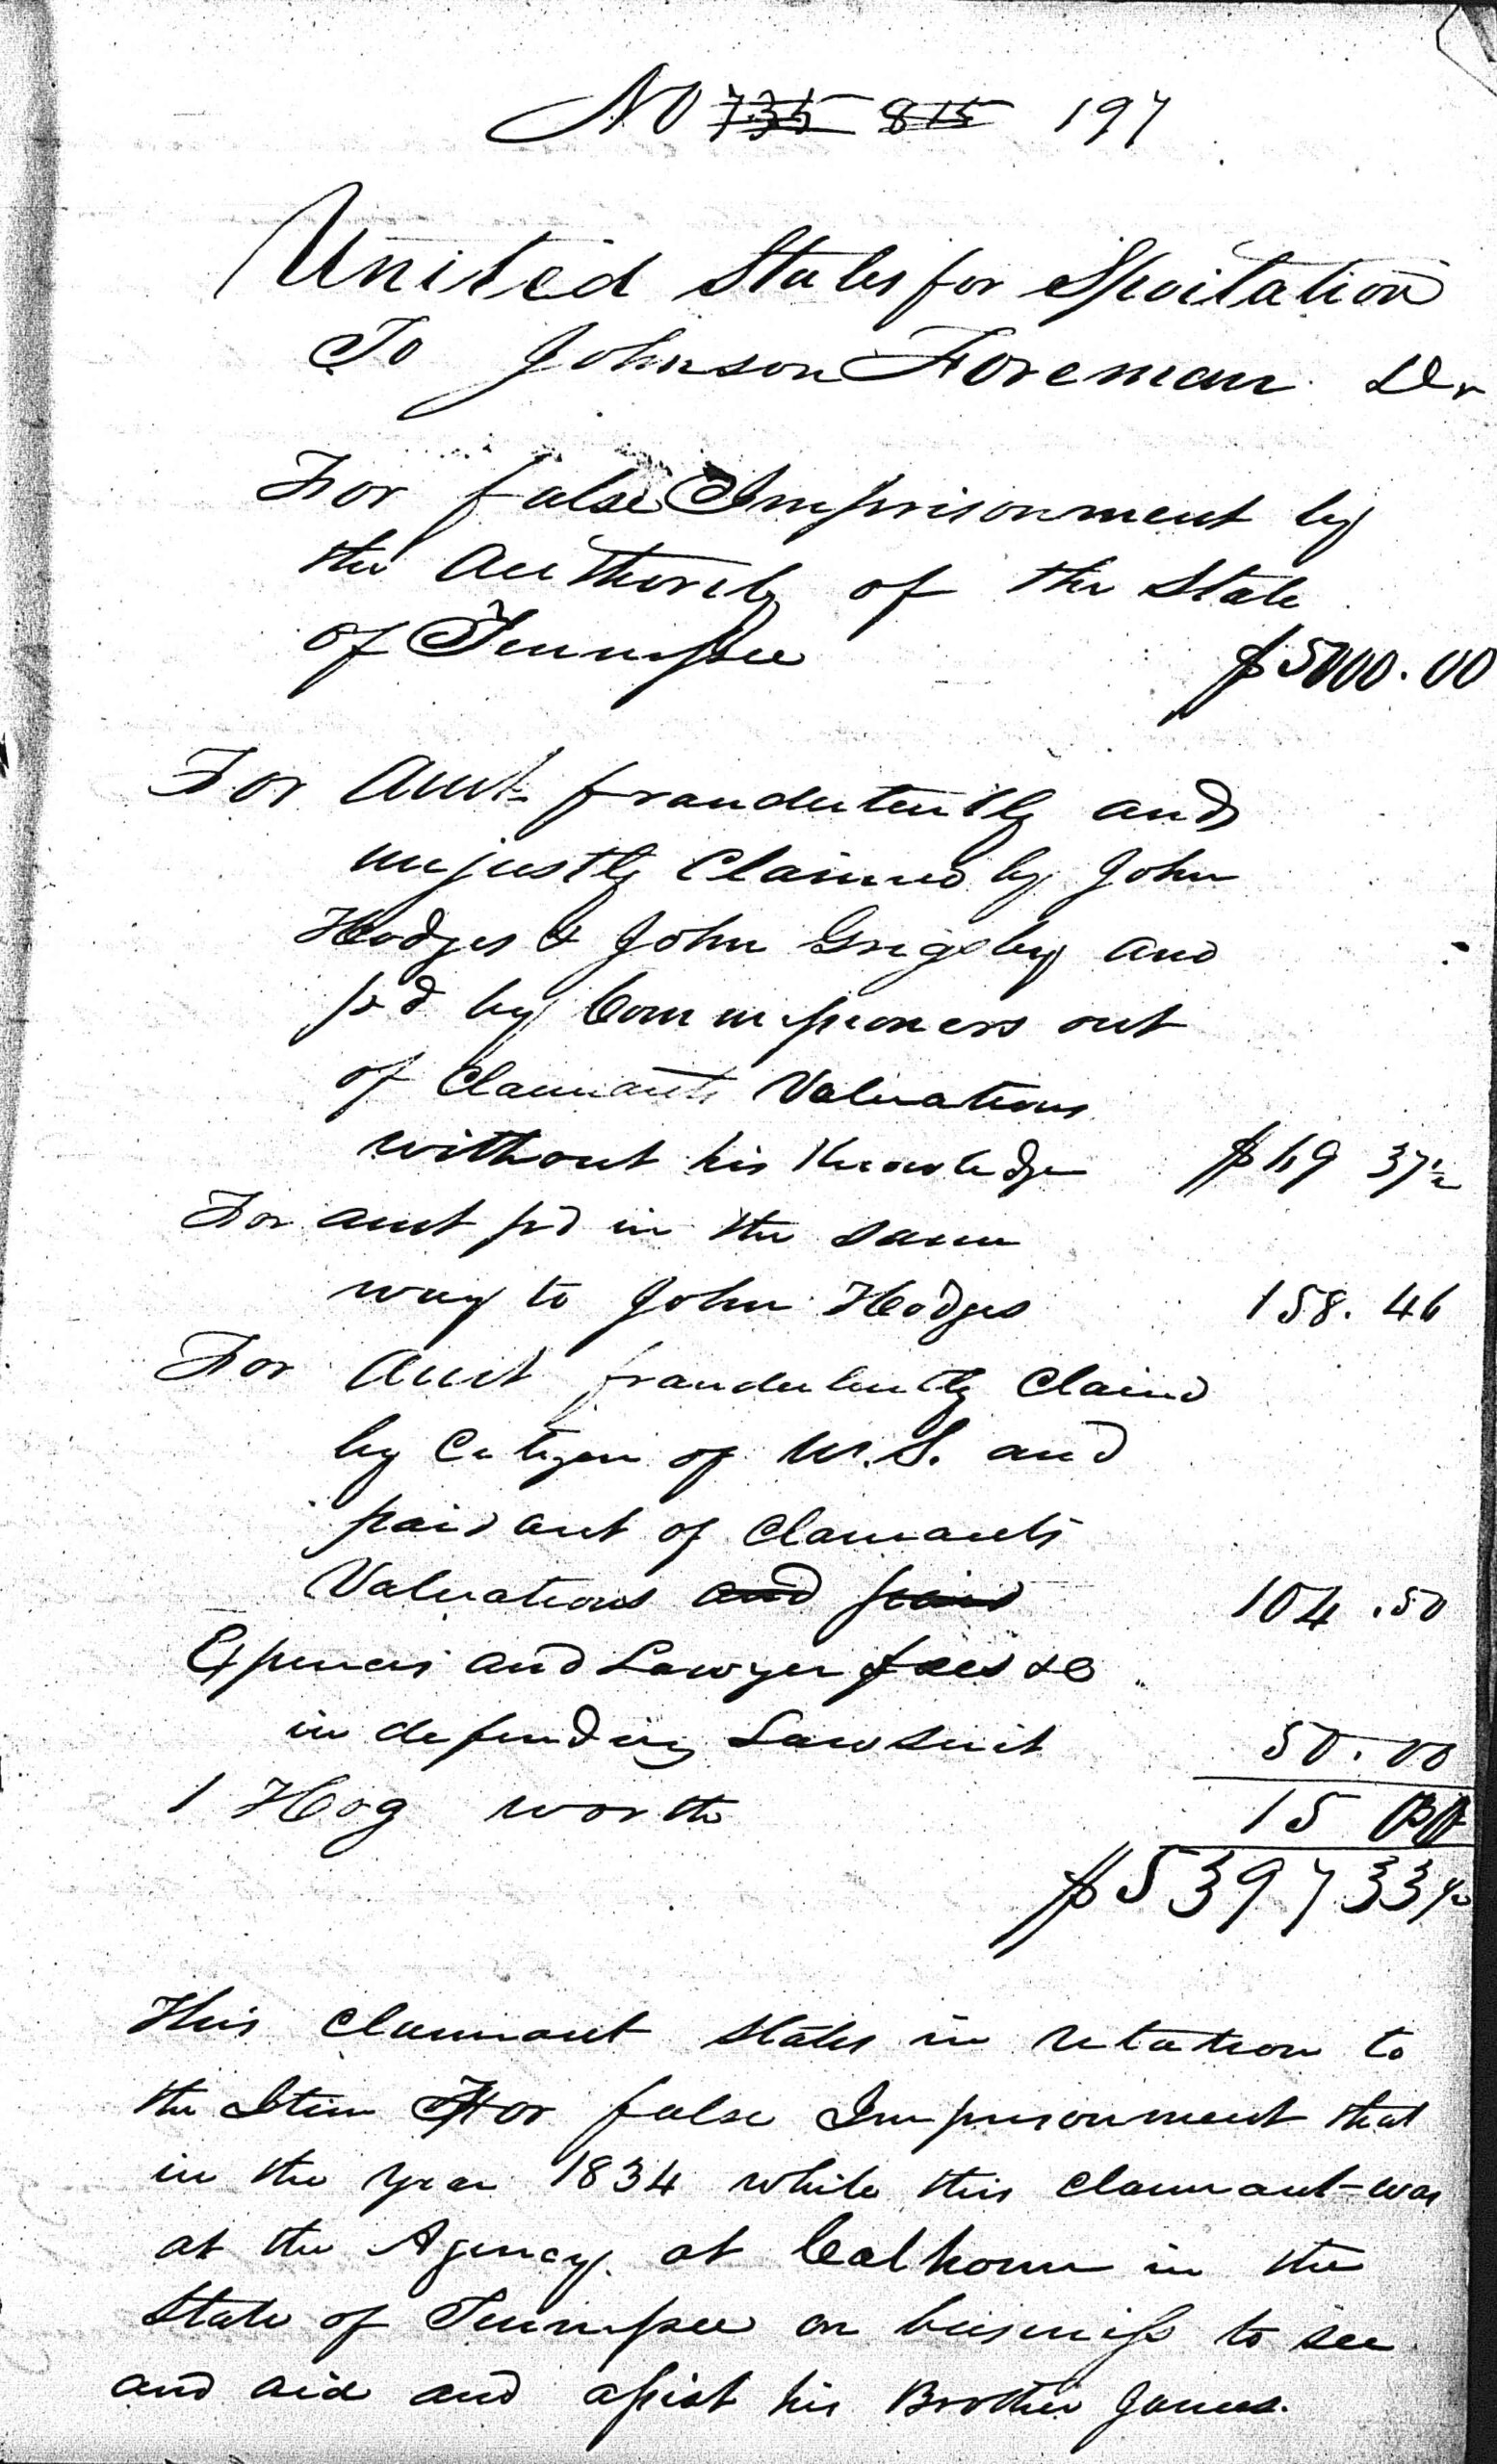 No 735 815 197
United States for Spoilation
To Johnson Foreman Dr
For false Imprisonment by
the Authority of the State
of Tennessee $5000.00
For Amt fraudulently and
unjustly Claimed by John
Hodges & John Grigsby and
pd by Commissioners out
of Claimants Valuations
without his Knowledge $69 37½
For amt pd in the same
way to John Hodges 158.46
For Amt fraudulently Claimd
by Citizen of U.S. and
paid out of Claimants
Valuations and paid 104.50
Expences and Lawyer fees &c
in defending Lawsuit 50.00
1 Hog worth 15
$5397 33½
This claimant states in relation to
the Item For false Imprisonment that
in the year 1834 while this claimant was
at the Agency at Calhoun in the
State of Tennessee on business to see
and aid and assist his Brother James